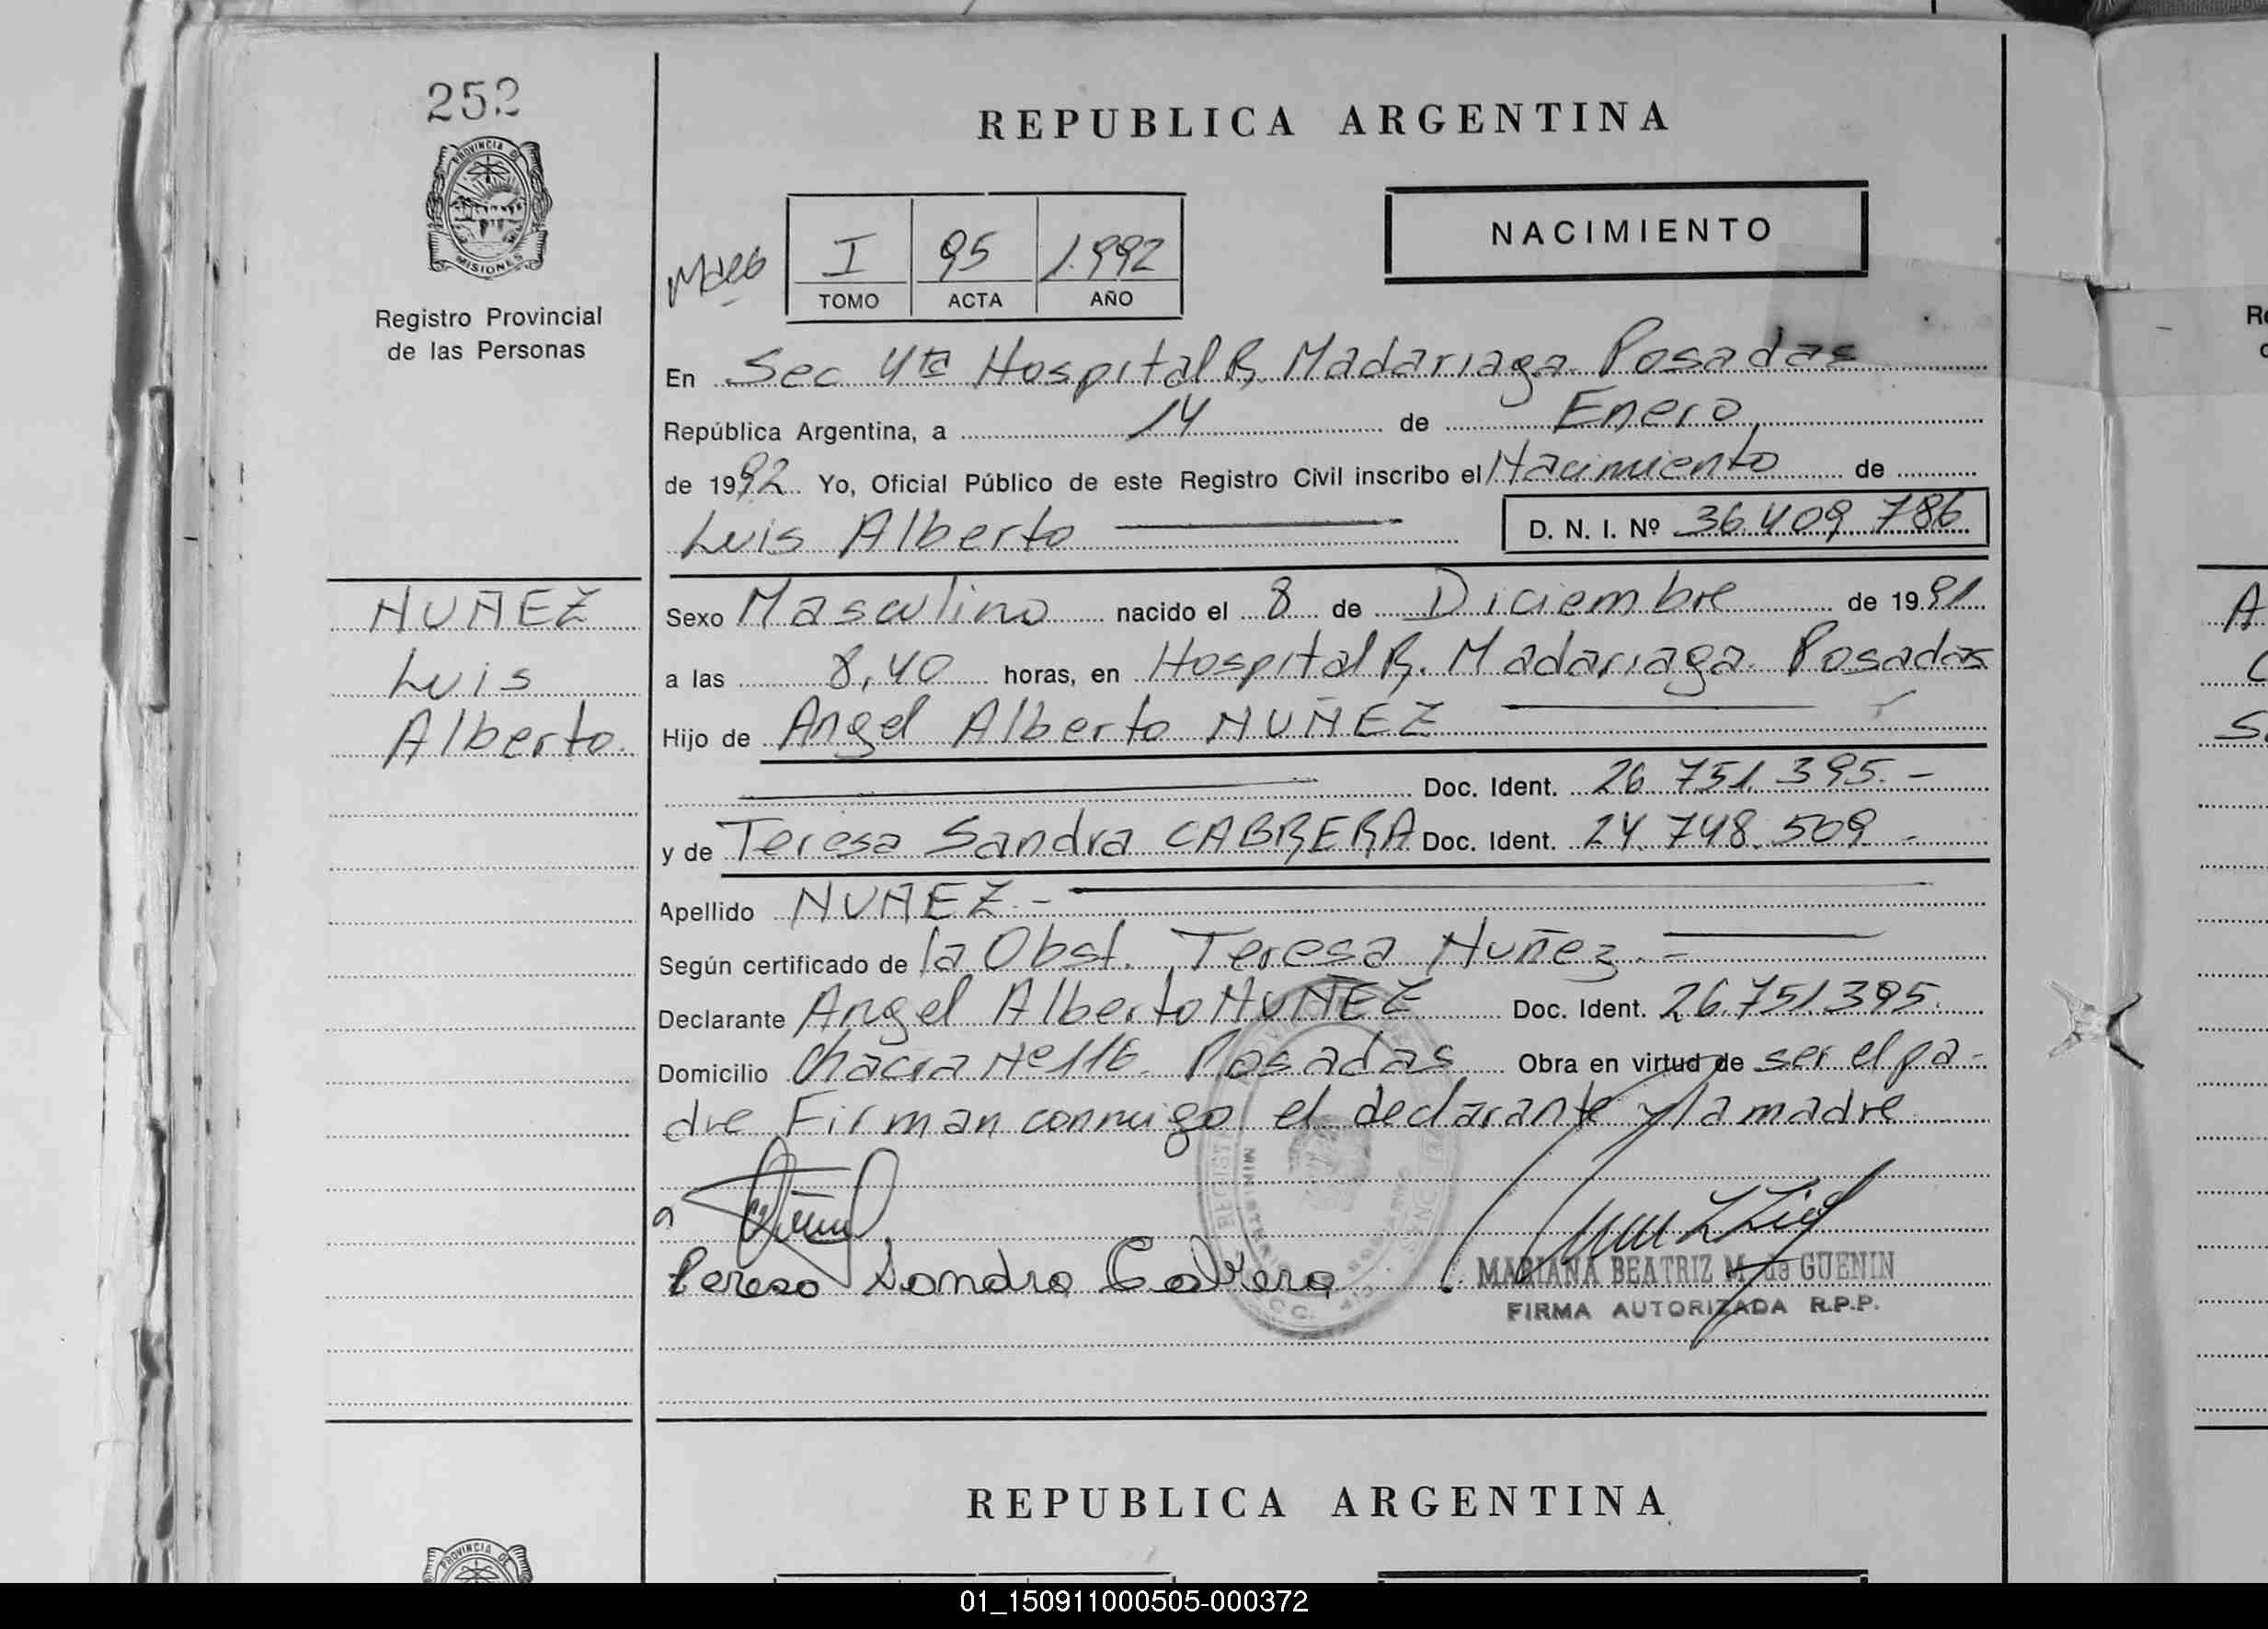 252
PROVINCIA DE
MISIONES
Registro Provincial
de las Personas
REPUBLICA ARGENTINA
NACIMIENTO
I 95 1.992
TOMO ACTA AÑO
En Sec 4ta Hospital R. Madariaga Posadas
República Argentina, a 14 de Enero
de 1992 Yo, Oficial Público de este Registro Civil inscribo el Nacimiento de
Luis Alberto D. N. I. Nº 36.409 786
NUÑEZ
Luis
Alberto.
Sexo Masculino nacido el 8 de Diciembre de 1991
a las 8,40 horas, en Hospital R. Madariaga Posadas
Hijo de Angel Alberto NUÑEZ
Doc. Ident. 26 751.395.-
y de Teresa Sandra CABRERA Doc. Ident. 24.748.509.-
Apellido NUÑEZ.-
Según certificado de la Obst. Teresa Nuñez.=
Declarante Angel Alberto NUÑEZ Doc. Ident. 26.751395.
Domicilio Chacra Nº116. Posadas Obra en virtud de ser el pa-
dre Firman conmigo el declarante y la madre
Teresa Sandra Cabrera
MARIANA BEATRIZ M. de GUENIN
FIRMA AUTORIZADA R.P.P.
REPUBLICA ARGENTINA
PROVINCIA DE
01_150911000505-000372